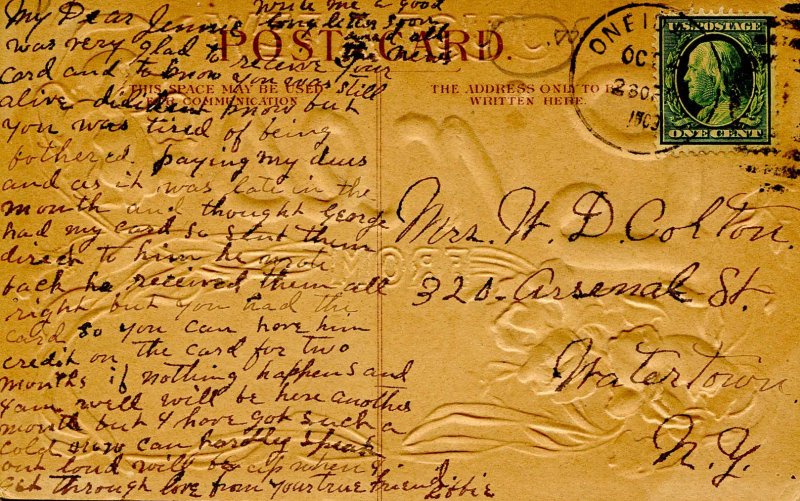 write me a good
long letter soon
and all
the news
POST CARD.
THIS SPACE MAY BE USED
FOR COMMUNICATION
THE ADDRESS ONLY TO BE
WRITTEN HERE.
My Dear Jennie
was very glad to receive your
card and to know you was still
alive didn't know but
you was tired of being
bothered. paying my dues
and as it was late in the
month and thought George
had my card so sent them
direct to him he wrote
back he received them all
right but you had the
card so you can have him
credit on the card for two
months if nothing happens and
I am well will be here another
month but I have got such a
cold now can hardly speak
out loud will be up when I
get through love from your true friend Libbie
ONEI
OCT
1909
U.S. POSTAGE
ONE CENT
Mrs. W. D. Colton.
320 - Arsenal St.
Watertown.
N.Y.
FROM